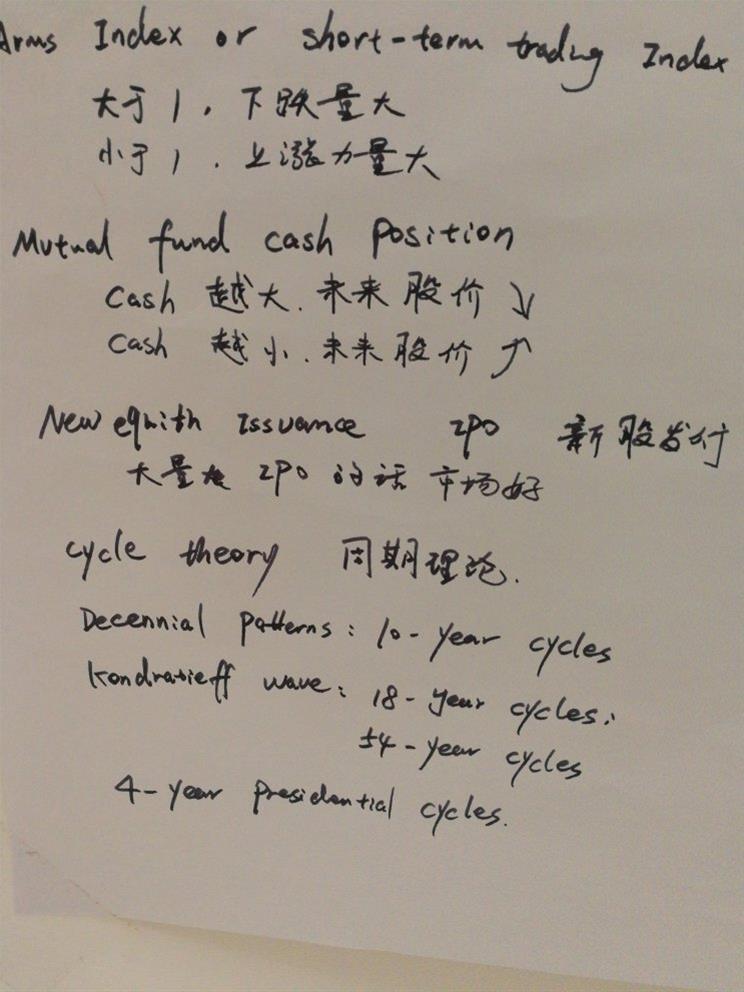 Arms Index or short-term trading Index
大于1，下跌量大
小于1，上涨力量大
Mutual fund cash position
Cash 越大，未来股价↘
Cash 越小，未来股价↗
New equith Issuance IPO 新股发付
大量发 IPO 的话 市场好
cycle theory 周期理论.
Decennial patterns: 10-year cycles
Kondratieff wave: 18-year cycles;
54-year cycles
4-year presidential cycles.